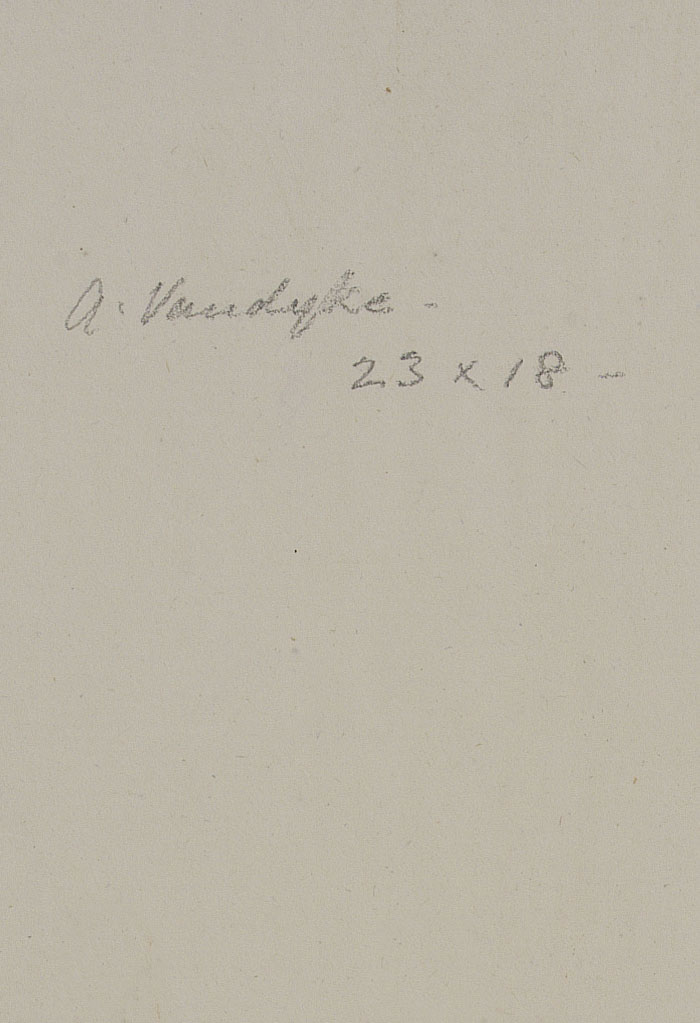 A. Vandyke -
23 x 18 -